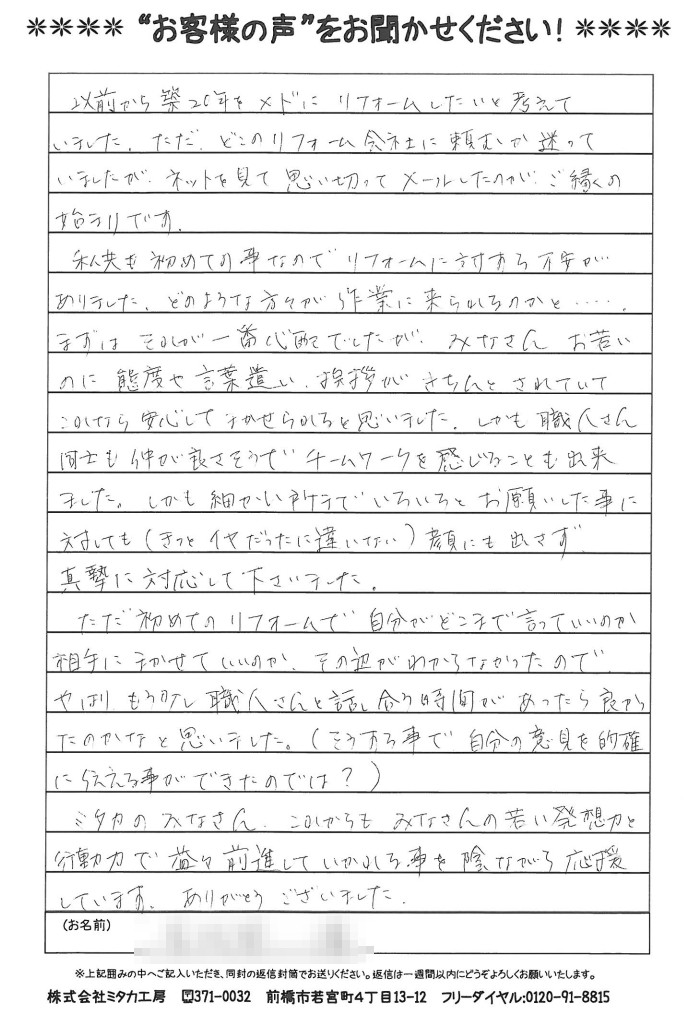 ＊＊＊＊ “お客様の声”をお聞かせください！ ＊＊＊＊
以前から築20年をメドに リフォームしたいと考えて
いました。ただ、どこのリフォーム会社に頼むか迷って
いましたが、ネットを見て思い切ってメールしたのが、ご縁の
始まりです。
私共も初めての事なので リフォームに対する不安が
ありました。どのような方々が作業に来られるのかと……。
まずは それが一番心配でしたが、みなさん お若い
のに 態度や言葉遣い、挨拶が きちんと されていて
これなら安心してまかせられると思いました。しかも職人さん
同士も仲が良さそうで チームワークを感じることも出来
ました。しかも細かい所まで いろいろと お願いした事に
対しても（きっと イヤだったに違いない）顔にも出さず、
真摯に対応して下さいました。
ただ初めてのリフォームで 自分がどこまで言っていいのか
相手にまかせていいのか、その辺がわからなかったので、
やはり もう少し 職人さんと話し合う時間が あったら良かっ
たのかなと思いました。（そうする事で 自分の意見を的確
に伝える事ができたのでは？）
ミタカのみなさん、これからも みなさんの若い発想力と
行動力で 益々前進していかれる事を 陰ながら 応援
しています。ありがとう ございました。
(お名前)
※上記囲みの中へご記入いただき、同封の返信封筒でお送りください。返信は一週間以内にどうぞよろしくお願いいたします。
株式会社ミタカ工房 〠371-0032 前橋市若宮町4丁目13-12 フリーダイヤル:0120-91-8815